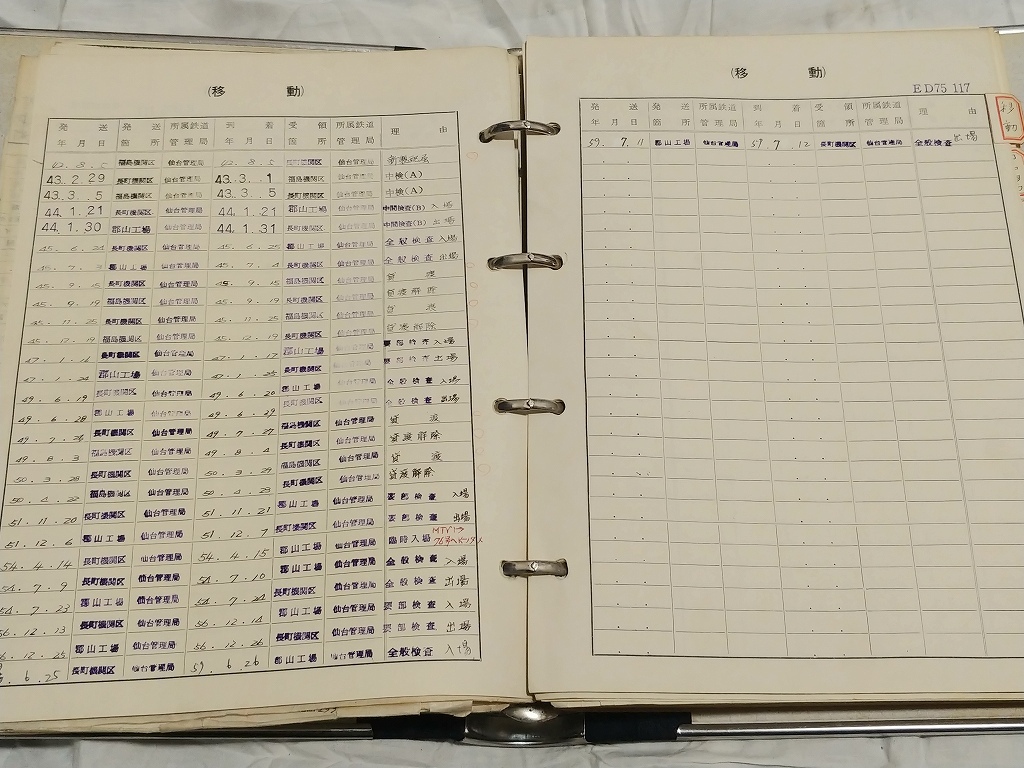 (移 動)
発送年月日 発送箇所 所属鉄道管理局 到着年月日 受領箇所 所属鉄道管理局 理由
42.8.5 福島機関区 仙台管理局 42.8.5 長町機関区 仙台管理局 新製配属
43.2.29 長町機関区 仙台管理局 43.3.1 福島機関区 仙台管理局 中検(A)
43.3.5 福島機関区 仙台管理局 43.3.5 長町機関区 仙台管理局 中検(A)
44.1.21 長町機関区 仙台管理局 44.1.21 郡山工場 仙台管理局 中間検査(B) 入場
44.1.30 郡山工場 仙台管理局 44.1.31 長町機関区 仙台管理局 中間検査(B) 出場
45.6.24 長町機関区 仙台管理局 45.6.25 郡山工場 仙台管理局 全般検査入場
45.7.3 郡山工場 仙台管理局 45.7.4 長町機関区 仙台管理局 全般検査出場
45.9.15 長町機関区 仙台管理局 45.9.15 福島機関区 仙台管理局 貸渡
45.9.19 福島機関区 仙台管理局 45.9.19 長町機関区 仙台管理局 貸渡解除
45.11.25 長町機関区 仙台管理局 45.11.25 福島機関区 仙台管理局 貸渡
45.12.19 福島機関区 仙台管理局 45.12.19 長町機関区 仙台管理局 貸渡解除
47.1.16 長町機関区 仙台管理局 47.1.17 郡山工場 仙台管理局 要部検査入場
47.1.24 郡山工場 仙台管理局 47.1.25 長町機関区 仙台管理局 要部検査出場
49.6.19 長町機関区 仙台管理局 49.6.20 郡山工場 仙台管理局 全般検査入場
49.6.28 郡山工場 仙台管理局 49.6.29 長町機関区 仙台管理局 全般検査出場
49.7.26 長町機関区 仙台管理局 49.7.27 福島機関区 仙台管理局 貸渡
49.8.3 福島機関区 仙台管理局 49.8.4 長町機関区 仙台管理局 貸渡解除
50.3.28 長町機関区 仙台管理局 50.3.29 福島機関区 仙台管理局 貸渡
50.4.22 福島機関区 仙台管理局 50.4.23 長町機関区 仙台管理局 貸渡解除
51.11.20 長町機関区 仙台管理局 51.11.21 郡山工場 仙台管理局 要部検査 入場
51.12.6 郡山工場 仙台管理局 51.12.7 長町機関区 仙台管理局 要部検査 出場
54.4.14 長町機関区 仙台管理局 54.4.15 郡山工場 仙台管理局 臨時入場
54.7.9 長町機関区 仙台管理局 54.7.10 郡山工場 仙台管理局 全般検査 入場
54.7.23 郡山工場 仙台管理局 54.7.24 長町機関区 仙台管理局 全般検査 出場
56.12.13 長町機関区 仙台管理局 56.12.14 郡山工場 仙台管理局 要部検査 入場
56.12.25 郡山工場 仙台管理局 56.12.26 長町機関区 仙台管理局 要部検査 出場
6.25 長町機関区 仙台管理局 59.6.26 郡山工場 仙台管理局 全般検査 入場
(移 動)
ED75 117
発送年月日 発送箇所 所属鉄道管理局 到着年月日 受領箇所 所属鉄道管理局 理由
59.7.11 郡山工場 仙台管理局 59.7.12 長町機関区 仙台管理局 全般検査 出場
移動